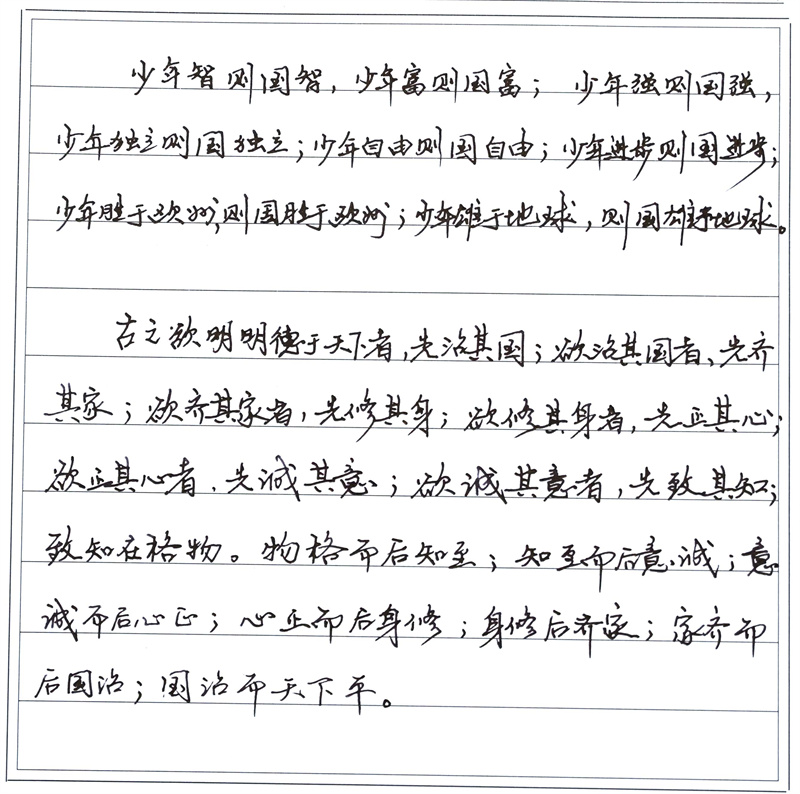 少年智则国智，少年富则国富；少年强则国强，
少年独立则国独立；少年自由则国自由；少年进步则国进步；
少年胜于欧洲，则国胜于欧洲；少年雄于地球，则国雄于地球。
古之欲明明德于天下者，先治其国；欲治其国者、先齐
其家；欲齐其家者，先修其身；欲修其身者，先正其心；
欲正其心者，先诚其意；欲诚其意者，先致其知；
致知在格物。物格而后知至；知至而后意诚；意
诚而后心正；心正而后身修；身修后齐家；家齐而
后国治；国治而天下平。